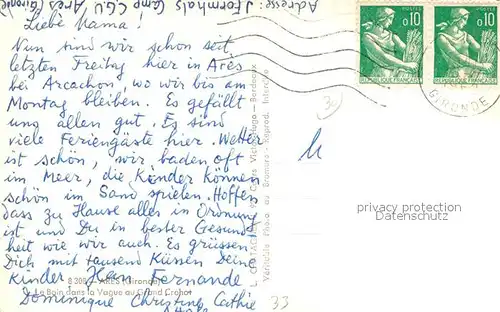 Adresse: J. Formhals Camp C.G.U. Arès (Gironde)
Liebe Mama!
Nun sind wir schon seit
letzten Freitag hier in Arès
bei Arcachon, wo wir bis am
Montag bleiben. Es gefällt
uns allen gut. Es sind
viele Feriengäste hier. Wetter
ist schön, wir baden oft
im Meer, die Kinder können
schön im Sand spielen. Hoffen
dass zu Hause alles in Ordnung
ist und Du in bester Gesund
heit wie wir auch. Es grüssen
Dich mit tausend Küssen Deine
Kinder Jean Fernande
Dominique Christine Cathie
8 309 - ARÈS (Gironde)
Le Bain dans la Vague au Grand Crohot
Victor-Hugo - Bordeaux
Véritable Photo au Bromure - Reprod. Interdite
POSTES
0,10
REPUBLIQUE FRANÇAISE
POSTES
0,10
REPUBLIQUE FRANÇAISE
GIRONDE
30
33
privacy protection
Datenschutz